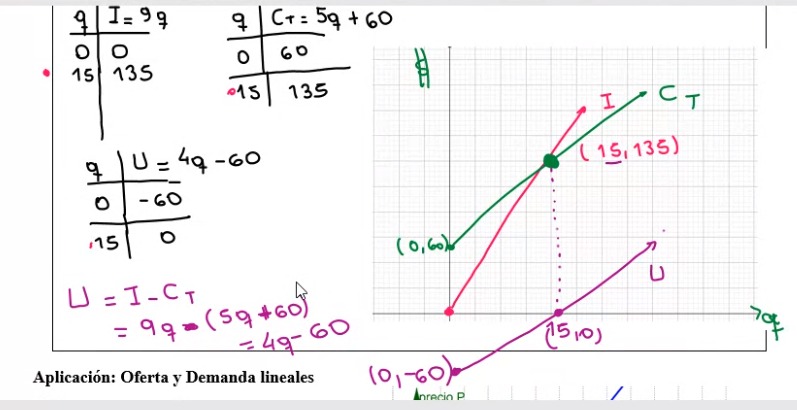 q | I = 9q
0 | 0
15 | 135
q | C_T = 5q + 60
0 | 60
15 | 135
q | U = 4q - 60
0 | -60
15 | 0
U = I - C_T
= 9q - (5q + 60)
= 4q - 60
$
I
C_T
(15, 135)
(0, 60)
U
q
(15, 0)
(0, -60)
Aplicación: Oferta y Demanda lineales
precio P